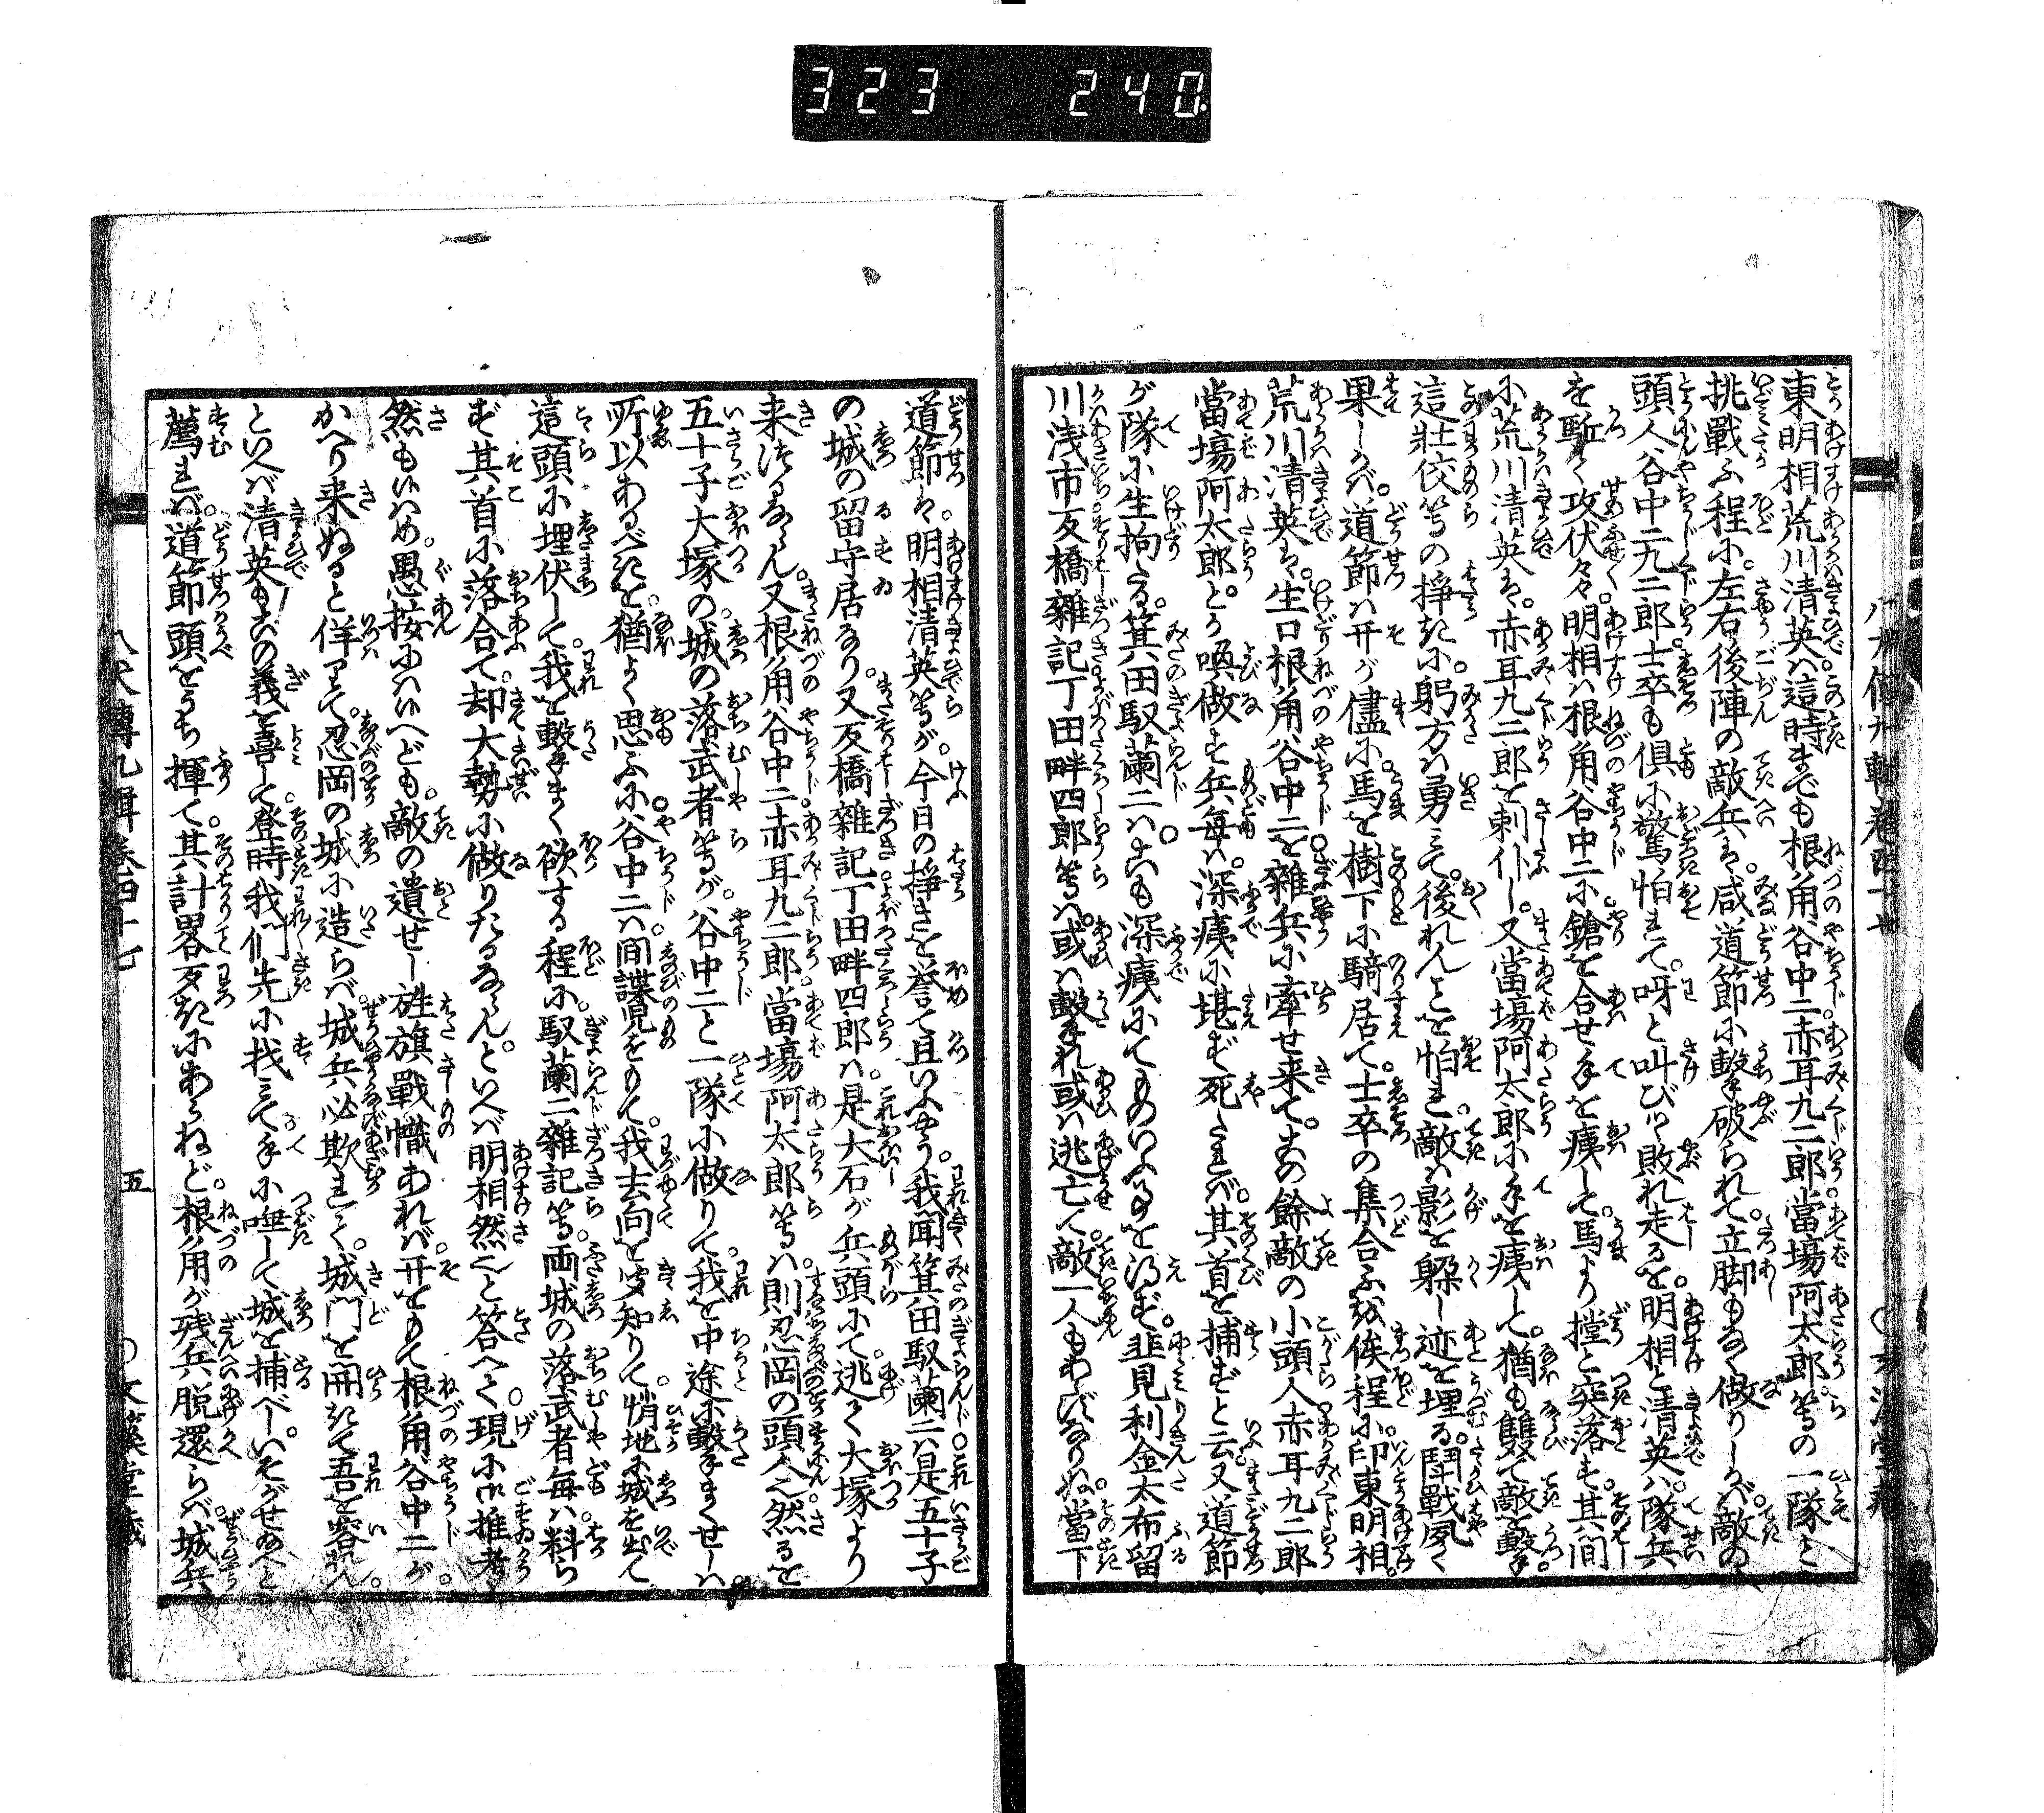 323 240.
東明相荒川清英ハ這時までも根角谷中二赤耳九二郎當場阿太郎等の一隊と
挑戰ふ程に。左右後陣の敵兵ハ。咸道節に擊破られて。立脚もなく做りしかバ。敵の
頭人谷中二九二郎。士卒も俱に驚怕れて。呀と叫びツヽ敗れ走るを。明相と清英ハ。隊兵
を駈て攻伏々々。明相ハ根角谷中二に鎗を合せ手を痍して。馬より撞と突落す。其間
に荒川清英ハ。赤耳九二郎を刺仆し。又當場阿太郎に手を痍して。猶も雙て敵を擊
這壯佼等の掙きに。躬方ハ勇て。後れんことを怕れ。敵ハ影を躱し迹を埋る。鬪戰夙く
果しかバ。道節ハ开が儘に馬を樹下に騎居て。士卒の集合ふを俟程に。印東明相。
荒川清英ハ。生口根角谷中二を雜兵に牽せ来て。その餘敵の小頭人赤耳九二郎
當場阿太郎とか喚做す兵每ハ。深痍に堪ず死たれバ。其首を捕ずと云。又道節
が隊に生拘たる。箕田馭蘭二ハ。これも深痍にてものいふことを得ず。韭見利金太布留
川浅市反橋雜記丁田畔四郎等ハ。或ハ擊れ或ハ逃亡て。敵一人もあらずなりぬ。當下
道節ハ。明相清英等が。今日の掙きを誉て且いふやう。我聞箕田馭蘭二ハ是五十子
の城の留守居なり。又反橋雜記丁田畔四郎ハ。是大石が兵頭にて。逃て大塚より
来つるならん。又根角谷中二赤耳九二郎。當場阿太郎等ハ。則忍岡の頭人也。然るを
五十子大塚の。城の落武者等が。谷中二と一隊に做りて。我を中途に擊まくせしハ。
所以あるべきを。猶よく思ふに。谷中二ハ。間諜児をもて。我去向を知りて。悄地に城を出て
這頭に埋伏して。我を擊まく欲する程に。馭蘭二雜記等。両城の落武者每ハ。料ら
ず其首に落合て。却大勢に做りたるならん。といへバ明相然也と答へて。現に御推考
然もいハめ。愚按にハいへども。敵の遺せし旌旗戰幟あれバ。开をもて根角谷中二が。
かへり来ぬると佯りて。忍岡の城に造らバ。城兵必欺れて。城門を開きて吾を容れん。
といへバ清英もこの義を喜して。登時我們先に找みて手に唾して城を捕べし。いそがせ給へと
薦れバ。道節頭をうち揮て。其計畧歹きにあらねど。根角が残兵脱還らバ。城兵
八犬傳九輯卷四十七
五